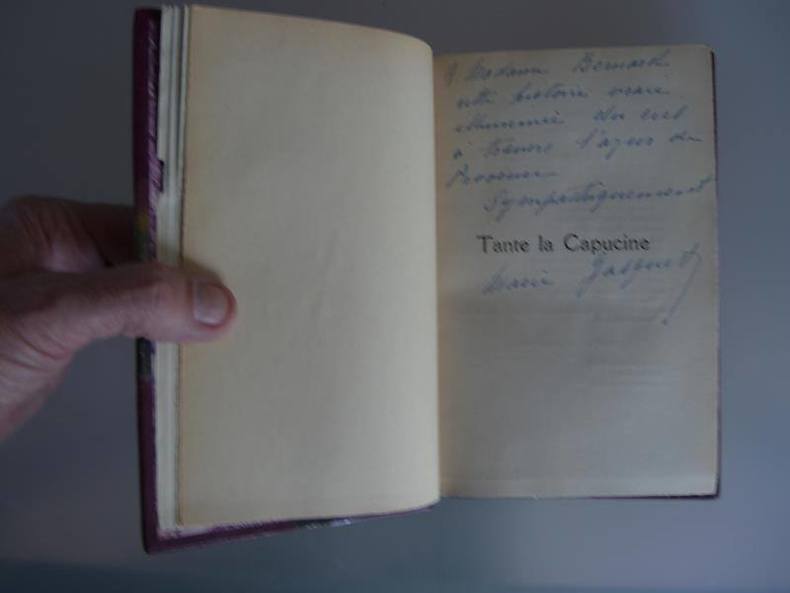 A Madame Bernard
cette histoire vraie
du ciel
à travers l'azur de
Provence
Sympathiquement
Tante la Capucine
Marie Gasquet